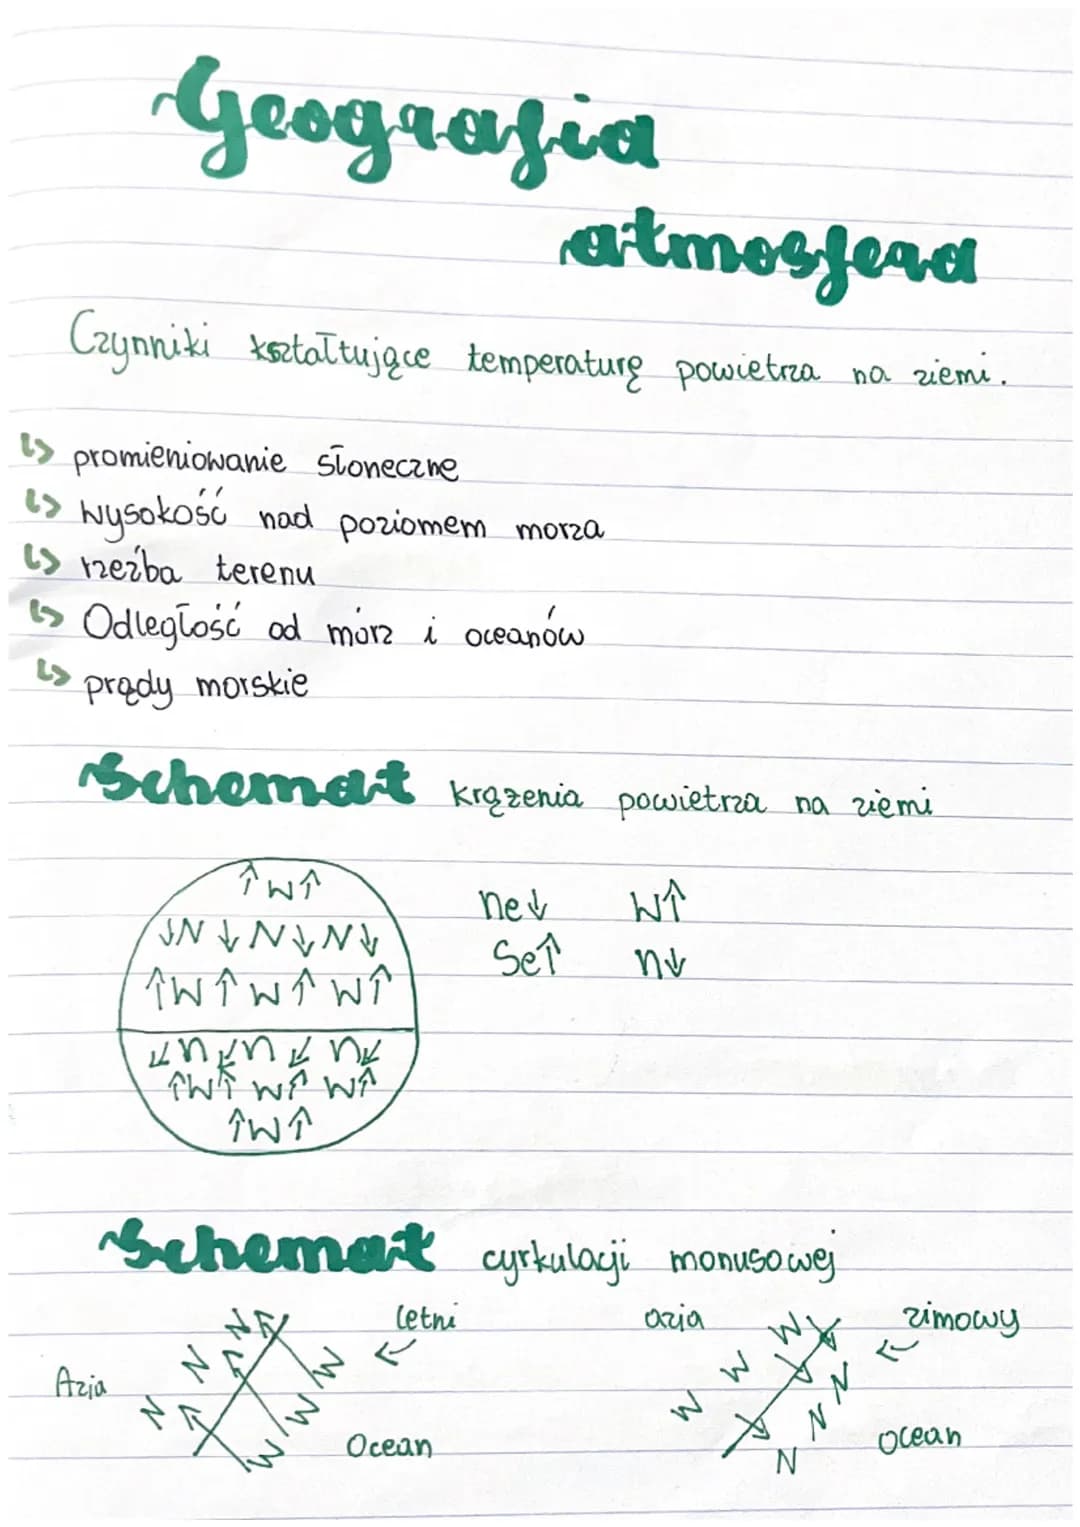 Geografia
atmosfera
Czynniki kształtujące temperaturę powietrza na ziemi.
↳ promieniowanie słoneczne
↳ wysokość nad poziomem morza
↳ rzeźba terenu
↳ Odległość od mórz i oceanów
↳ prądy morskie
Schemat krążenia powietrza na ziemi
↑W↑
↓N↓N↓N↓
↑W↑W↑W↑
↙n↙n↙n↙
↑W↑W↑W↑
↑W↑
ne↓ W↑
Se↑ n↓
Schemat cyrkulacji monusowej
letni
Azja
N N N
W W W
Ocean
azja
zimowy
W W W
N N N
Ocean